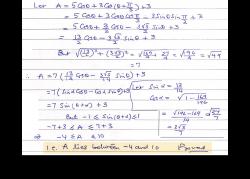 Let A = 5 Cosθ + 3 Cos(θ + π/3) + 3
= 5 Cosθ + 3 Cosθ Cos π/3 - 3 Sinθ Sin π/3 + 3
= 5 Cosθ + 3/2 Cosθ - 3√3/2 Sinθ + 3
= 13/2 Cosθ - 3√3/2 Sinθ + 3
But √(13/2)² + (3√3/2)² = √169/4 + 27/4 = √196/4 = √49
= 7
∴ A = 7(13/14 Cosθ - 3√3/14 Sinθ) + 3
= 7(Sinα Cosθ - Cosα Sinθ) + 3
Let Sinα = 13/14
Cosα = √1 - 169/196
= 7 Sin(θ + α) + 3
= √196-169/14 = √27/14
But -1 ≤ Sin(θ+α) ≤ 1
= 3√3/14
-7+3 ≤ A ≤ 7+3
⇒ -4 ≤ A ≤ 10
i.e. A lies between -4 and 10 Proved